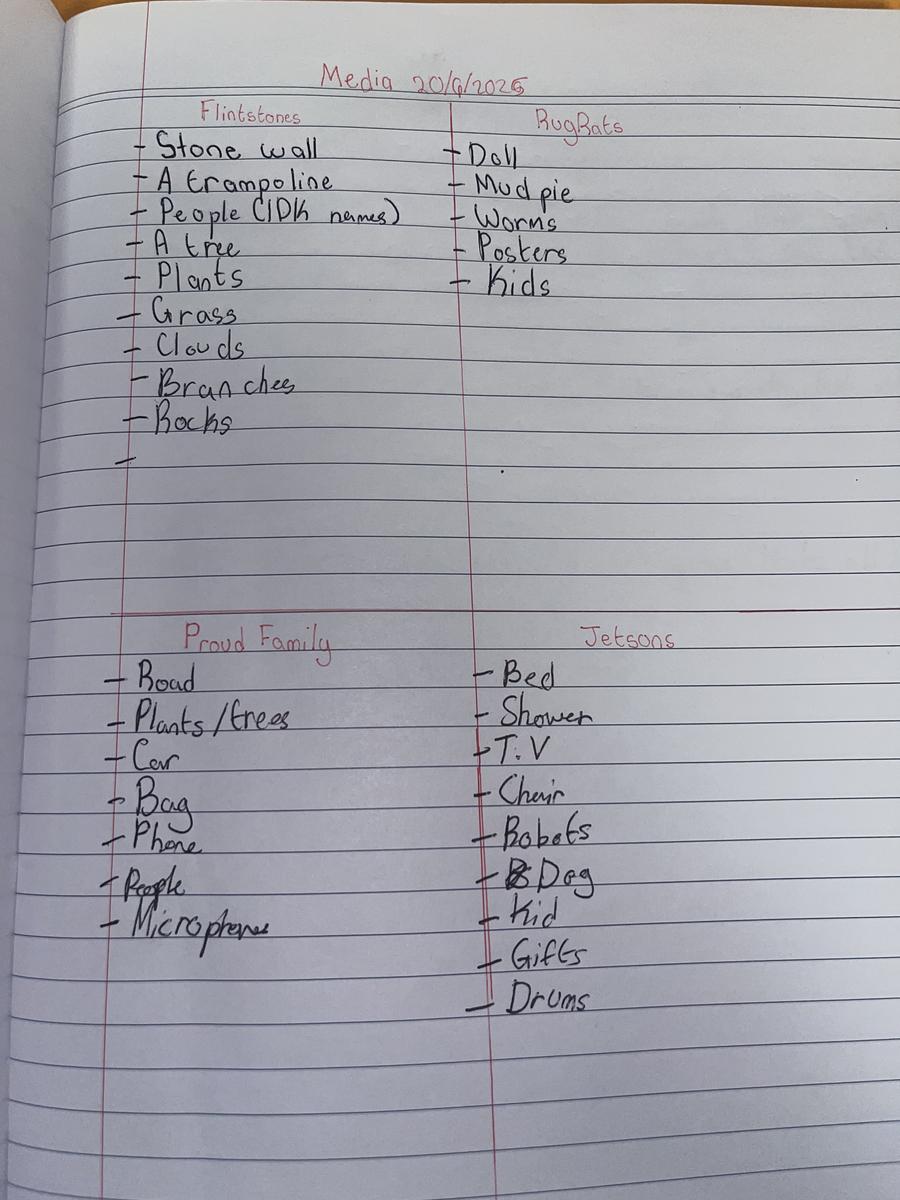 Media 20/9/2025
Flintstones
- Stone wall
- A trampoline
- People (IDK names)
- A tree
- Plants
- Grass
- Clouds
- Branches
- Rocks
-
RugRats
- Doll
- Mud pie
- Worms
- Posters
- Kids
Proud Family
- Road
- Plants/trees
- Car
- Bag
- Phone
- People
- Microphone
Jetsons
- Bed
- Shower
- T.V
- Chair
- Robots
- Dog
- Kid
- Gifts
- Drums